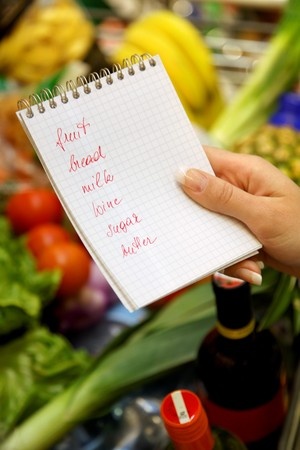 fruit
bread
milk
wine
sugar
butter